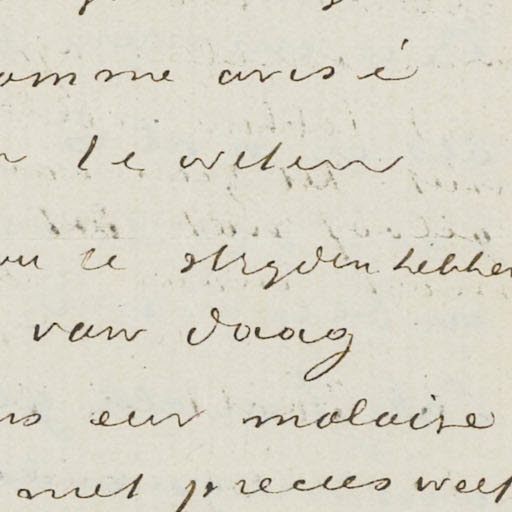 omme avisé
te weten
te strijden hebben
van daag
een malaise
met precies weet